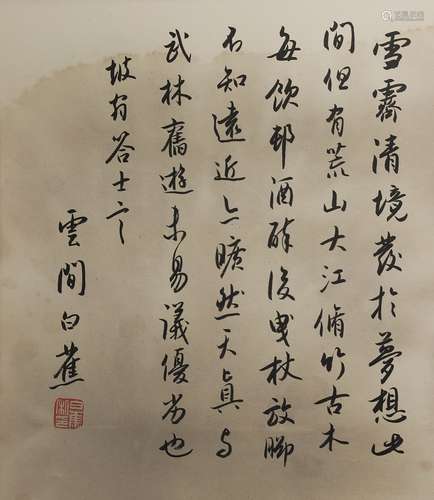 雪霽清境發於夢想此
間但有荒山大江脩竹古木
每飲邨酒醉後曳杖放脚
不知遠近亦曠然天真與
武林舊遊未易議優劣也
坡翁答言上人
雲間白蕉